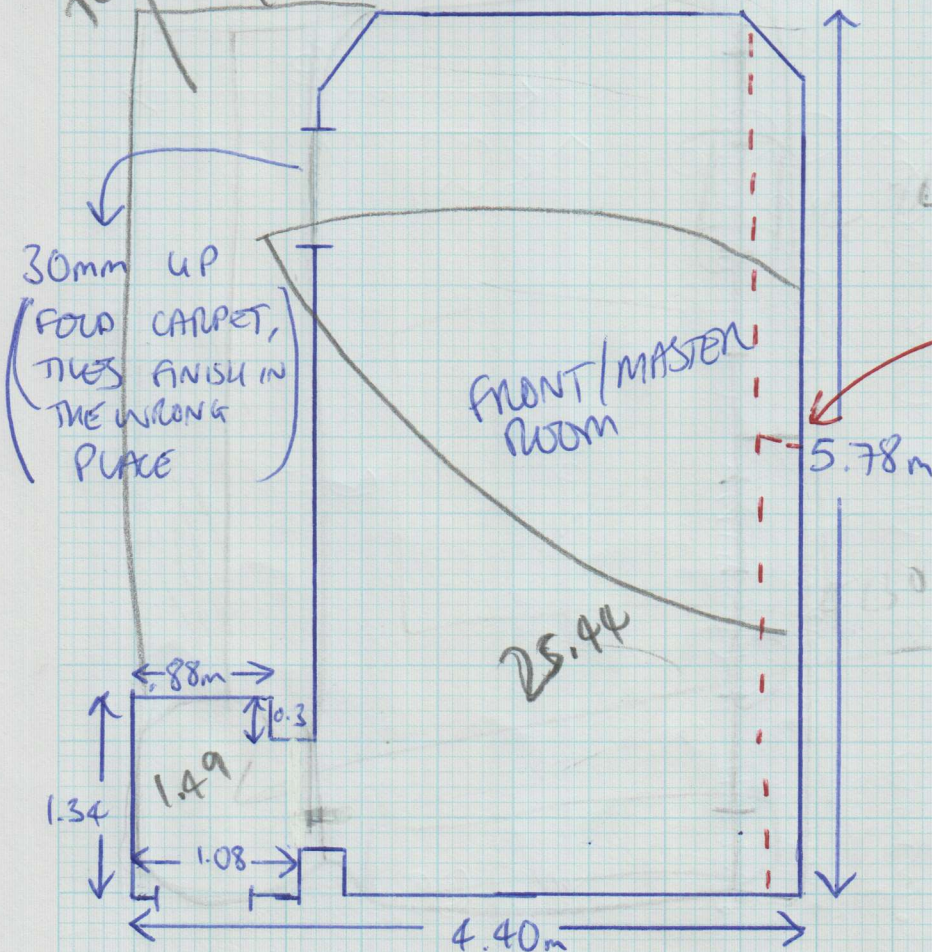 30mm UP
(FOLD CARPET,
TILES FINISH IN
THE WRONG
PLACE)
FRONT/MASTER
ROOM
5.78m
25.44
.88m
0.3
1.49
1.34
1.08
4.40m